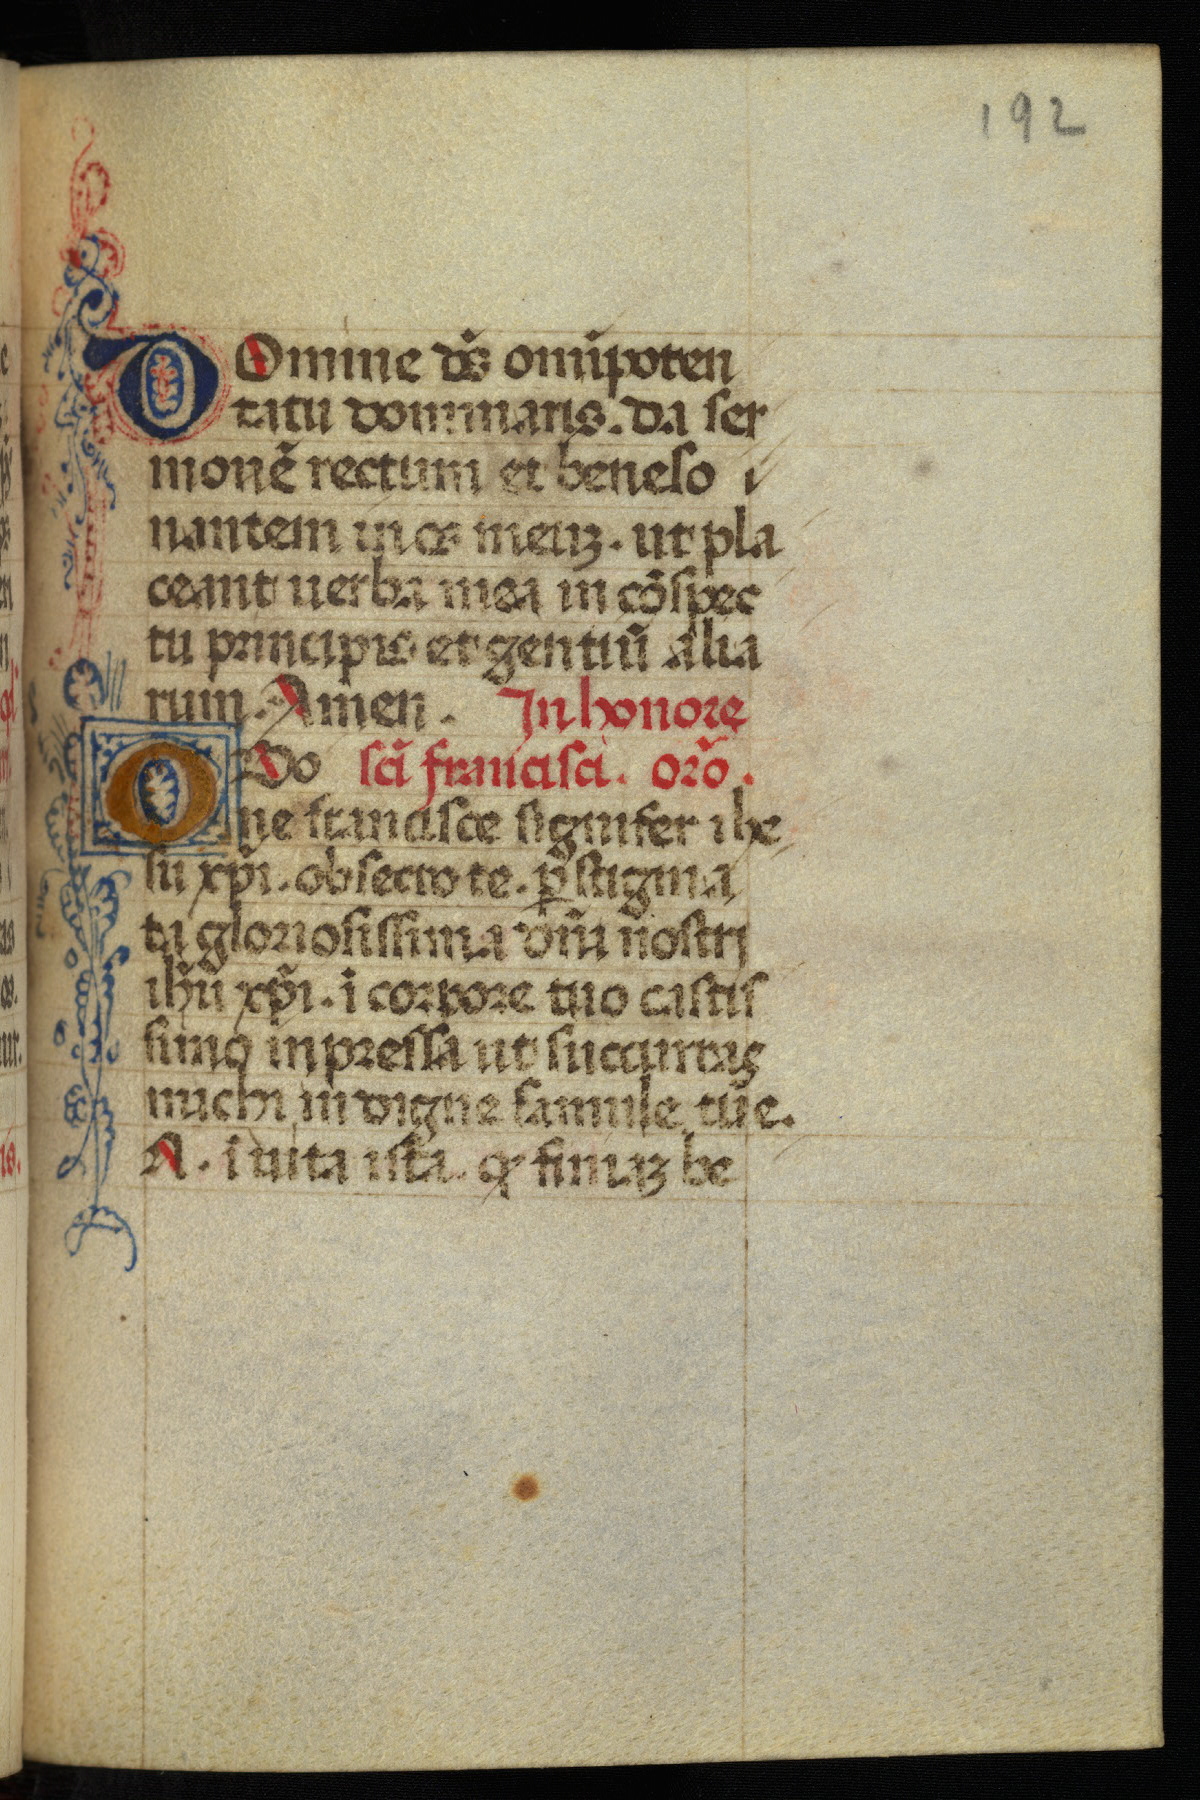 192
DOmine dn̄s omīpoten
tatu dominaris. da ser
monē rectum et beneso
nantem in os meuȝ. ut pla
ceant uerba mea in cōspec
tu principis et gentiū alia
rum. Amen. In honore
O Do sc̄i francisci. or̄o.
ne francisce signifer ihe
su xp̄i. obsecro te. ꝑ stigma
ta gloriosissima dn̄i nostri
ihū xp̄i. ī corpore tuo castis
simo inpressa ut succurras
michi indigne famule tue.
A. ī uita ista. fīniaȝ be